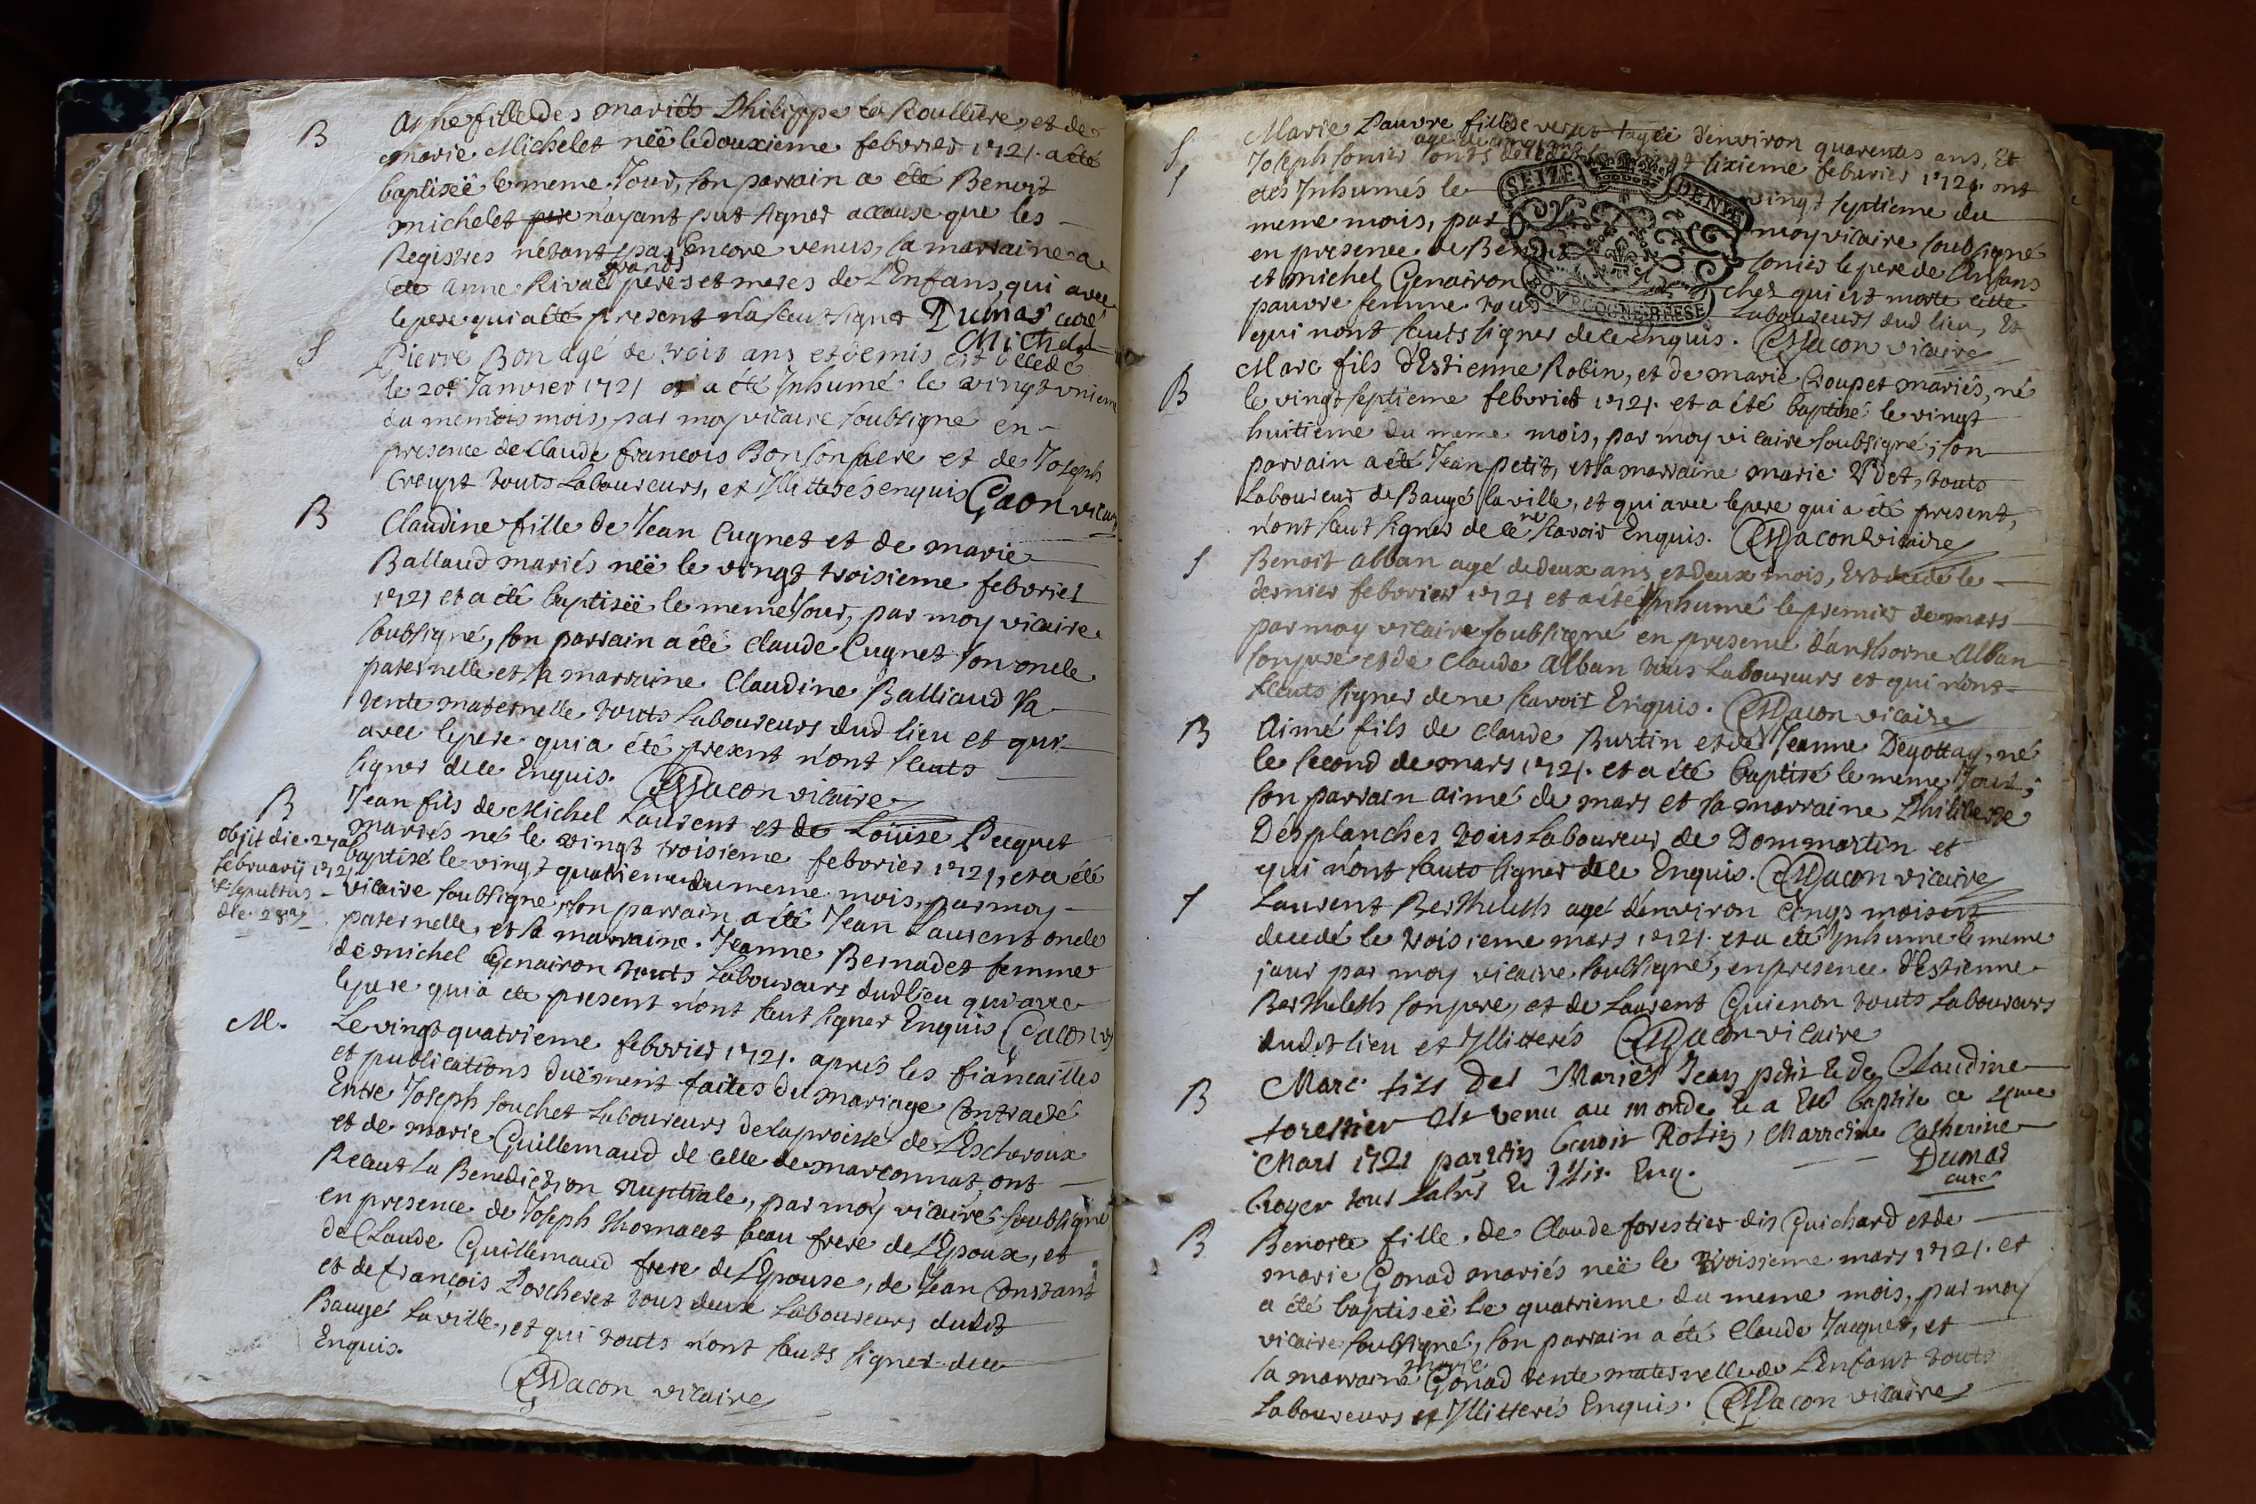 B
Anne fille des mariés Philippe la Roullière, et de
marie Michelet néë le douxieme febvrier 1721. a été
baptiseë le meme Jour, son parrain a été Benoit
michelet pere n'ayant put signer accause que les
Registres n'étant pas encore venus, la marraine a
été anne Rivae grands peres et meres de L'Enfans, qui avec
le pere qui a été present n'a sceut signer Dumas curé
Michelet
S
Pierre Bon agé de trois ans et demis est décédé
le 20e Janvier 1721 et a été Inhumé le vingt unieme
du meme mois, par moy vicaire soubsigné en
presence de Claude francois Bon son pere et de Joseph
Creupt touts Laboureurs, et Illitterés enquis Gacon vicaire
B
Claudine fille de Jean Cugnet et de marie
Ballaud mariés néë le vingt troisieme febvrier
1721 et a été baptiseë le meme Jour, par moy vicaire
soubsigné, son parrain a été Claude Cugnet son oncle
paternelle et sa marraine Claudine Balliaud sa
tente maternelle touts Laboureurs dud lieu et qui
avec le pere qui a été present n'ont sceuts
signer de ce Enquis. Gacon vicaire
B
Jean fils de Michel Laurent et de Loüise Pecquet
mariés né le vingt troisieme febvrier 1721, et a été
baptisé le vingt quatrieme du meme mois, par moy
vicaire soubsigné, son parrain a été Jean Laurent oncle
paternelle, et sa marraine Jeanne Bernadet femme
de michel Genairon touts Laboureurs dud lieu qui avec
le pere qui a été present n'ont sceut signer Enquis Gacon v
objit die 27a
februarij 1721
et sepultus
die 28a
M.
Le vingt quatrieme febvrier 1721. aprués les fiancailles
et publications duëment faites du mariage Contracté
Entre Joseph souchet Laboureurs de la proisse de L'Escheroux
et de marie Guillemaud de celle de marconnat, ont
Receut La Benediction Nuptiale, par moy vicaire soubsigné
en presence de Joseph thomacet beau frere de L'Epoux, et
de Claude Guillemaud frere de L'Epouse, de Jean Constant
et de françois Porcheret tous deux Laboureurs dudit
Baugé la ville, et qui touts n'ont sceuts signer de ce
Enquis.
Gacon vicaire
S
Marie Pauvre fille agée d'environ quarentes ans, Et
S
Joseph sonier sixieme febvrier 1721. ont
etés Inhumés le vingt septieme du
meme mois, par moy vicaire soubsigné
en presence de sonier le pere de L'Enfans
et michel Genairon chez qui est morte cette
pauvre femme tous Laboureurs dud lieu, Et
qui n'ont sceuts signer de ce Enquis. Gacon vicaire
SEIZE DENIE
BOURGOGNE BRESSE
B
Marc fils d'Estienne Robin, et de marie Croupet mariés, né
le vingt septieme febvrier 1721. et a été baptisé le vingt
huitieme du meme mois, par moy vicaire soubsigné, son
parrain a été Jean petit, et sa marraine marie Udet, touts
Laboureur de Baugé la ville, et qui avec le pere qui a été present,
n'ont sceut signer de ce ne scavoir Enquis. Gacon vicaire
S
Benoit alban agé de deux ans, et deux mois, Est decedé le
dernier febvrier 1721 et a été Inhumé le premier de mars
par moy vicaire soubsigné en presence d'anthoine Alban
son pere et de Claude alban tous Laboureurs et qui n'ont
sceuts signer de ne scavoir Enquis. Gacon vicaire
B
Aimé fils de Claude Burtin et de Jeanne Degottay, né
le second de mars 1721. et a été baptisé le meme Jour;
son parrain aimé de mars et sa marraine Philiberte
Desplanches, touts Laboureur de Dommartin et
qui n'ont sceuts signer de ce Enquis. Gacon vicaire
S
Laurent Bertheleth agé d'environ Cinqs mois est
decedé le troisieme mars 1721. et a été Inhume le meme
jour par moy vicaire soubsigné, en presence d'Estienne
Bertheleth son pere, et de Laurent Guienon touts Laboureurs
dudit lieu et Illitterés Gacon vicaire
B
Marc fils des Mariés Jean petit & de Claudine
forestier est venu au monde & a Eté baptise ce 4me
Mars 1721 parrain benoit Robin, Marraine Catherine
Croyer tous Labrs & Illit. Enq. Dumas
curé
B
Benoite fille de Claude forestier dit Guichard et de
marie Gonad mariés néë le troisieme mars 1721. et
a été baptiseë Le quatrieme du meme mois, par moy
vicaire soubsigné, son parrain a été Claude Jacquet, et
la marraine marie Gonad tente maternelle de L'Enfant touts
Laboureurs et Illitterés Enquis. Gacon vicaire